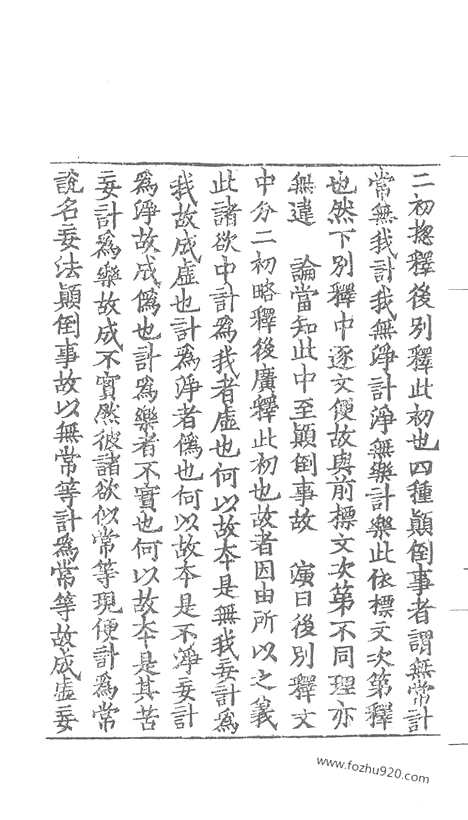 二初揔釋後別釋此初也四種顛倒事者謂無常計
常無我計我無淨計淨無樂計樂此依標文次第釋
也然下別釋中逐文便故與前標文次第不同理亦
無違　論當知此中至顛倒事故　演曰後別釋文
中分二初略釋後廣釋此初也故者因由所以之義
此諸欲中計爲我者虛也何以故本是無我妄計爲
我故成虛也計爲淨者僞也何以故本是不淨妄計
爲淨故成僞也計爲樂者不實也何以故本是其苦
妄計爲樂故成不實然彼諸欲似常等現便計爲常
說名妄法顛倒事故以無常等計爲常等故成虛妄
www.fozhu920.com